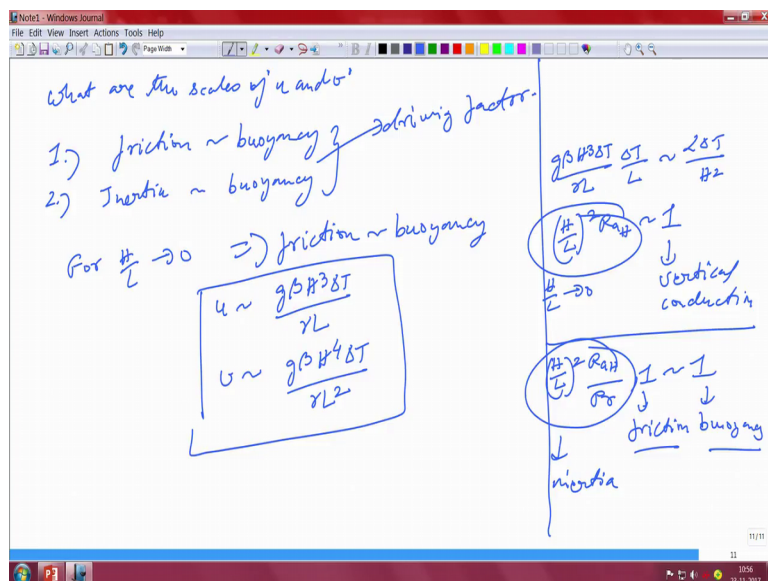 Note1 - Windows Journal
File Edit View Insert Actions Tools Help
Page Width
What are the scales of u and v
1.) friction ~ buoyancy
→ driving factor.
2.) Inertia ~ buoyancy
For H/L → 0 => friction ~ buoyancy
u ~ gβH³ΔT / γL
v ~ gβH⁴ΔT / γL²
gβH³ΔT / γL ΔT / L ~ αΔT / H²
(H/L)² Ra_H ~ 1
↓
H/L → 0
vertical
conduction
(H/L)² Ra_H / Pr 1 ~ 1
↓ ↓
friction buoyancy
↓
inertia
11/11
11
10:56
23-11-2017